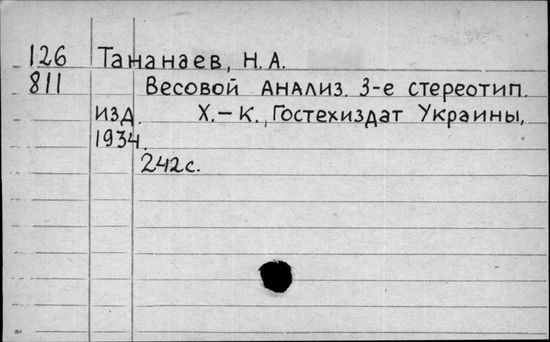 126 Тананаев, Н.А.
811 Весовой анализ. 3-е стереотип.
изд. Х.-К., Гостехиздат Украины,
1934.
242с.